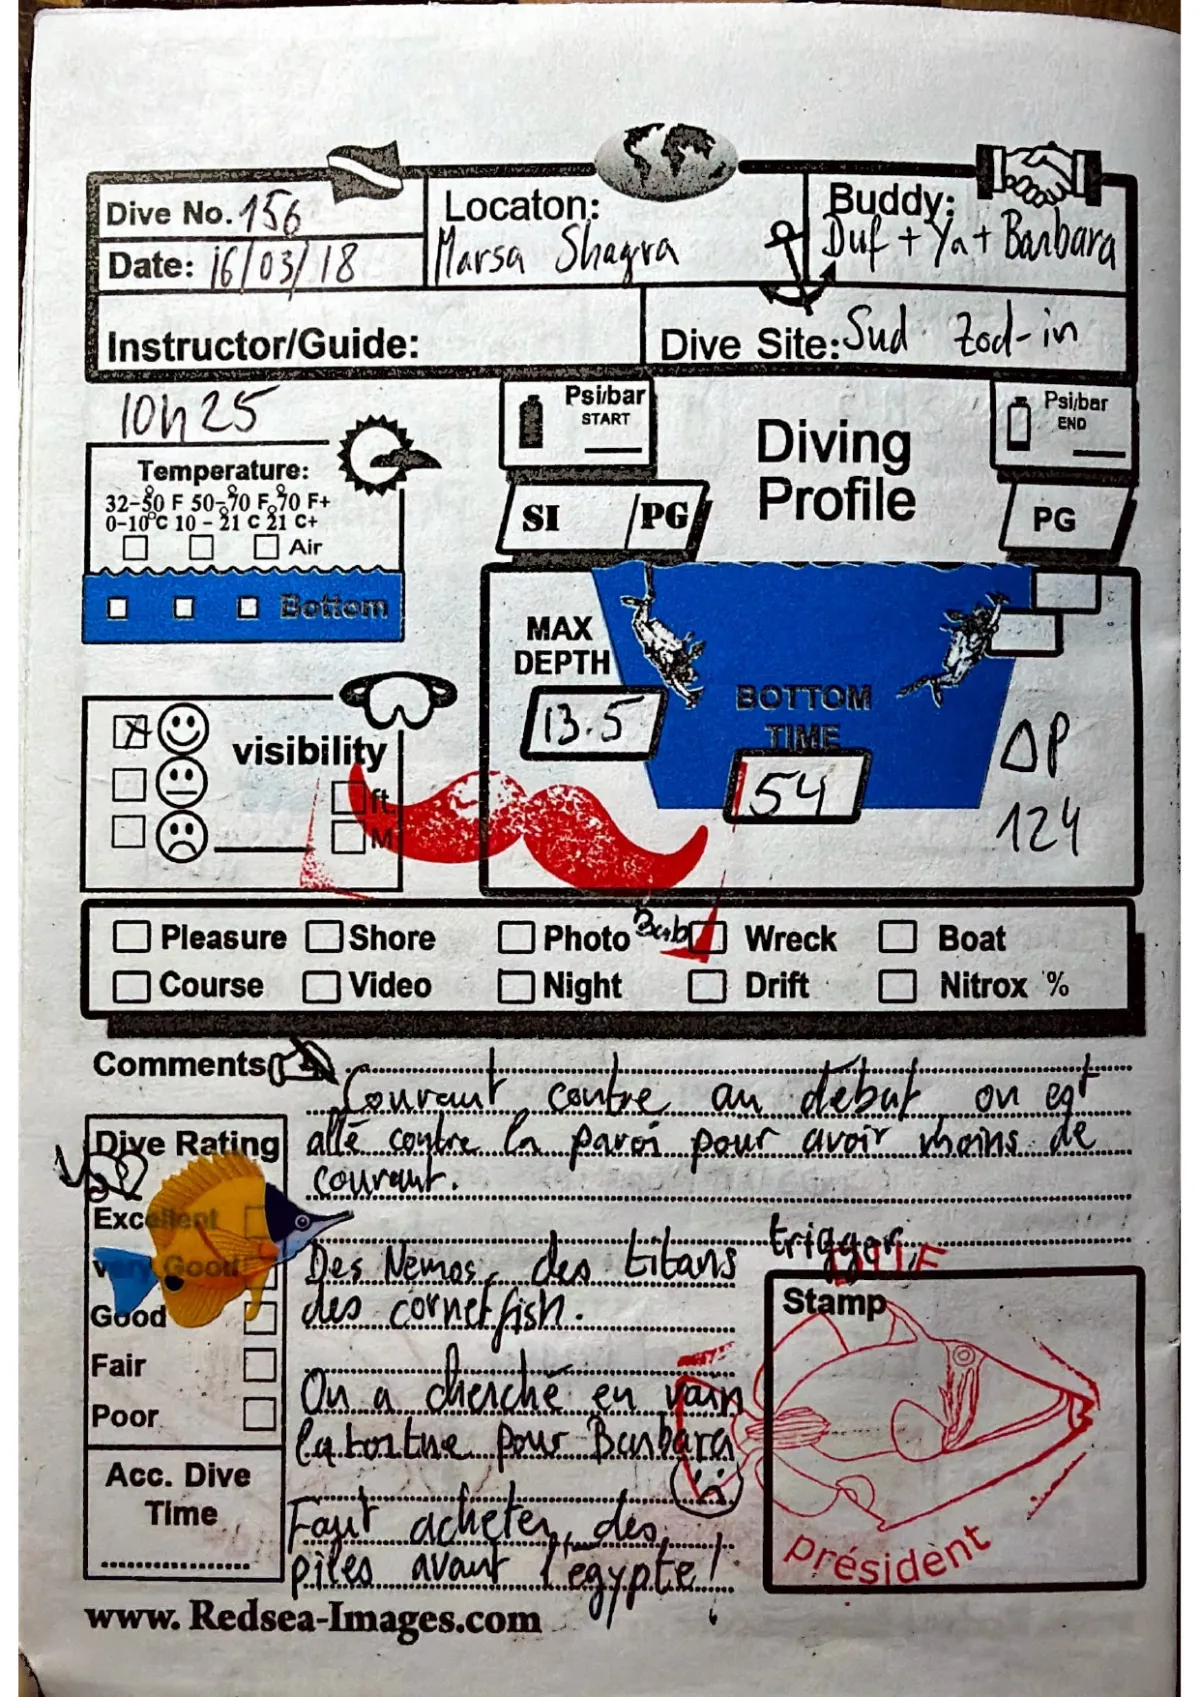 Dive No. 156
Date: 16/03/18
Locaton:
Marsa Shagra
Buddy:
Duf + Ya + Barbara
Instructor/Guide:
Dive Site: Sud Zod-in
10h25
Psi/bar
START
Diving
Profile
Psi/bar
END
Temperature:
32-50 F 50-70 F 70 F+
0-10°C 10 - 21 C 21 C+
Air
Bottom
SI PG
PG
MAX
DEPTH
13.5
BOTTOM
TIME
54
ΔP
124
visibility
ft.
M
Pleasure Shore Photo Bub Wreck Boat
Course Video Night Drift Nitrox %
Comments
Courant contre au début on est
allé contre la paroi pour avoir moins de
courant.
Des Nemos, des titans trigger,
des cornetfish.
On a cherché en vain
la tortue pour Barbara
Faut acheter des
piles avant l'egypte!
Dive Rating
Excellent
Very Good
Good
Fair
Poor
Acc. Dive
Time
Stamp
président
www. Redsea-Images.com